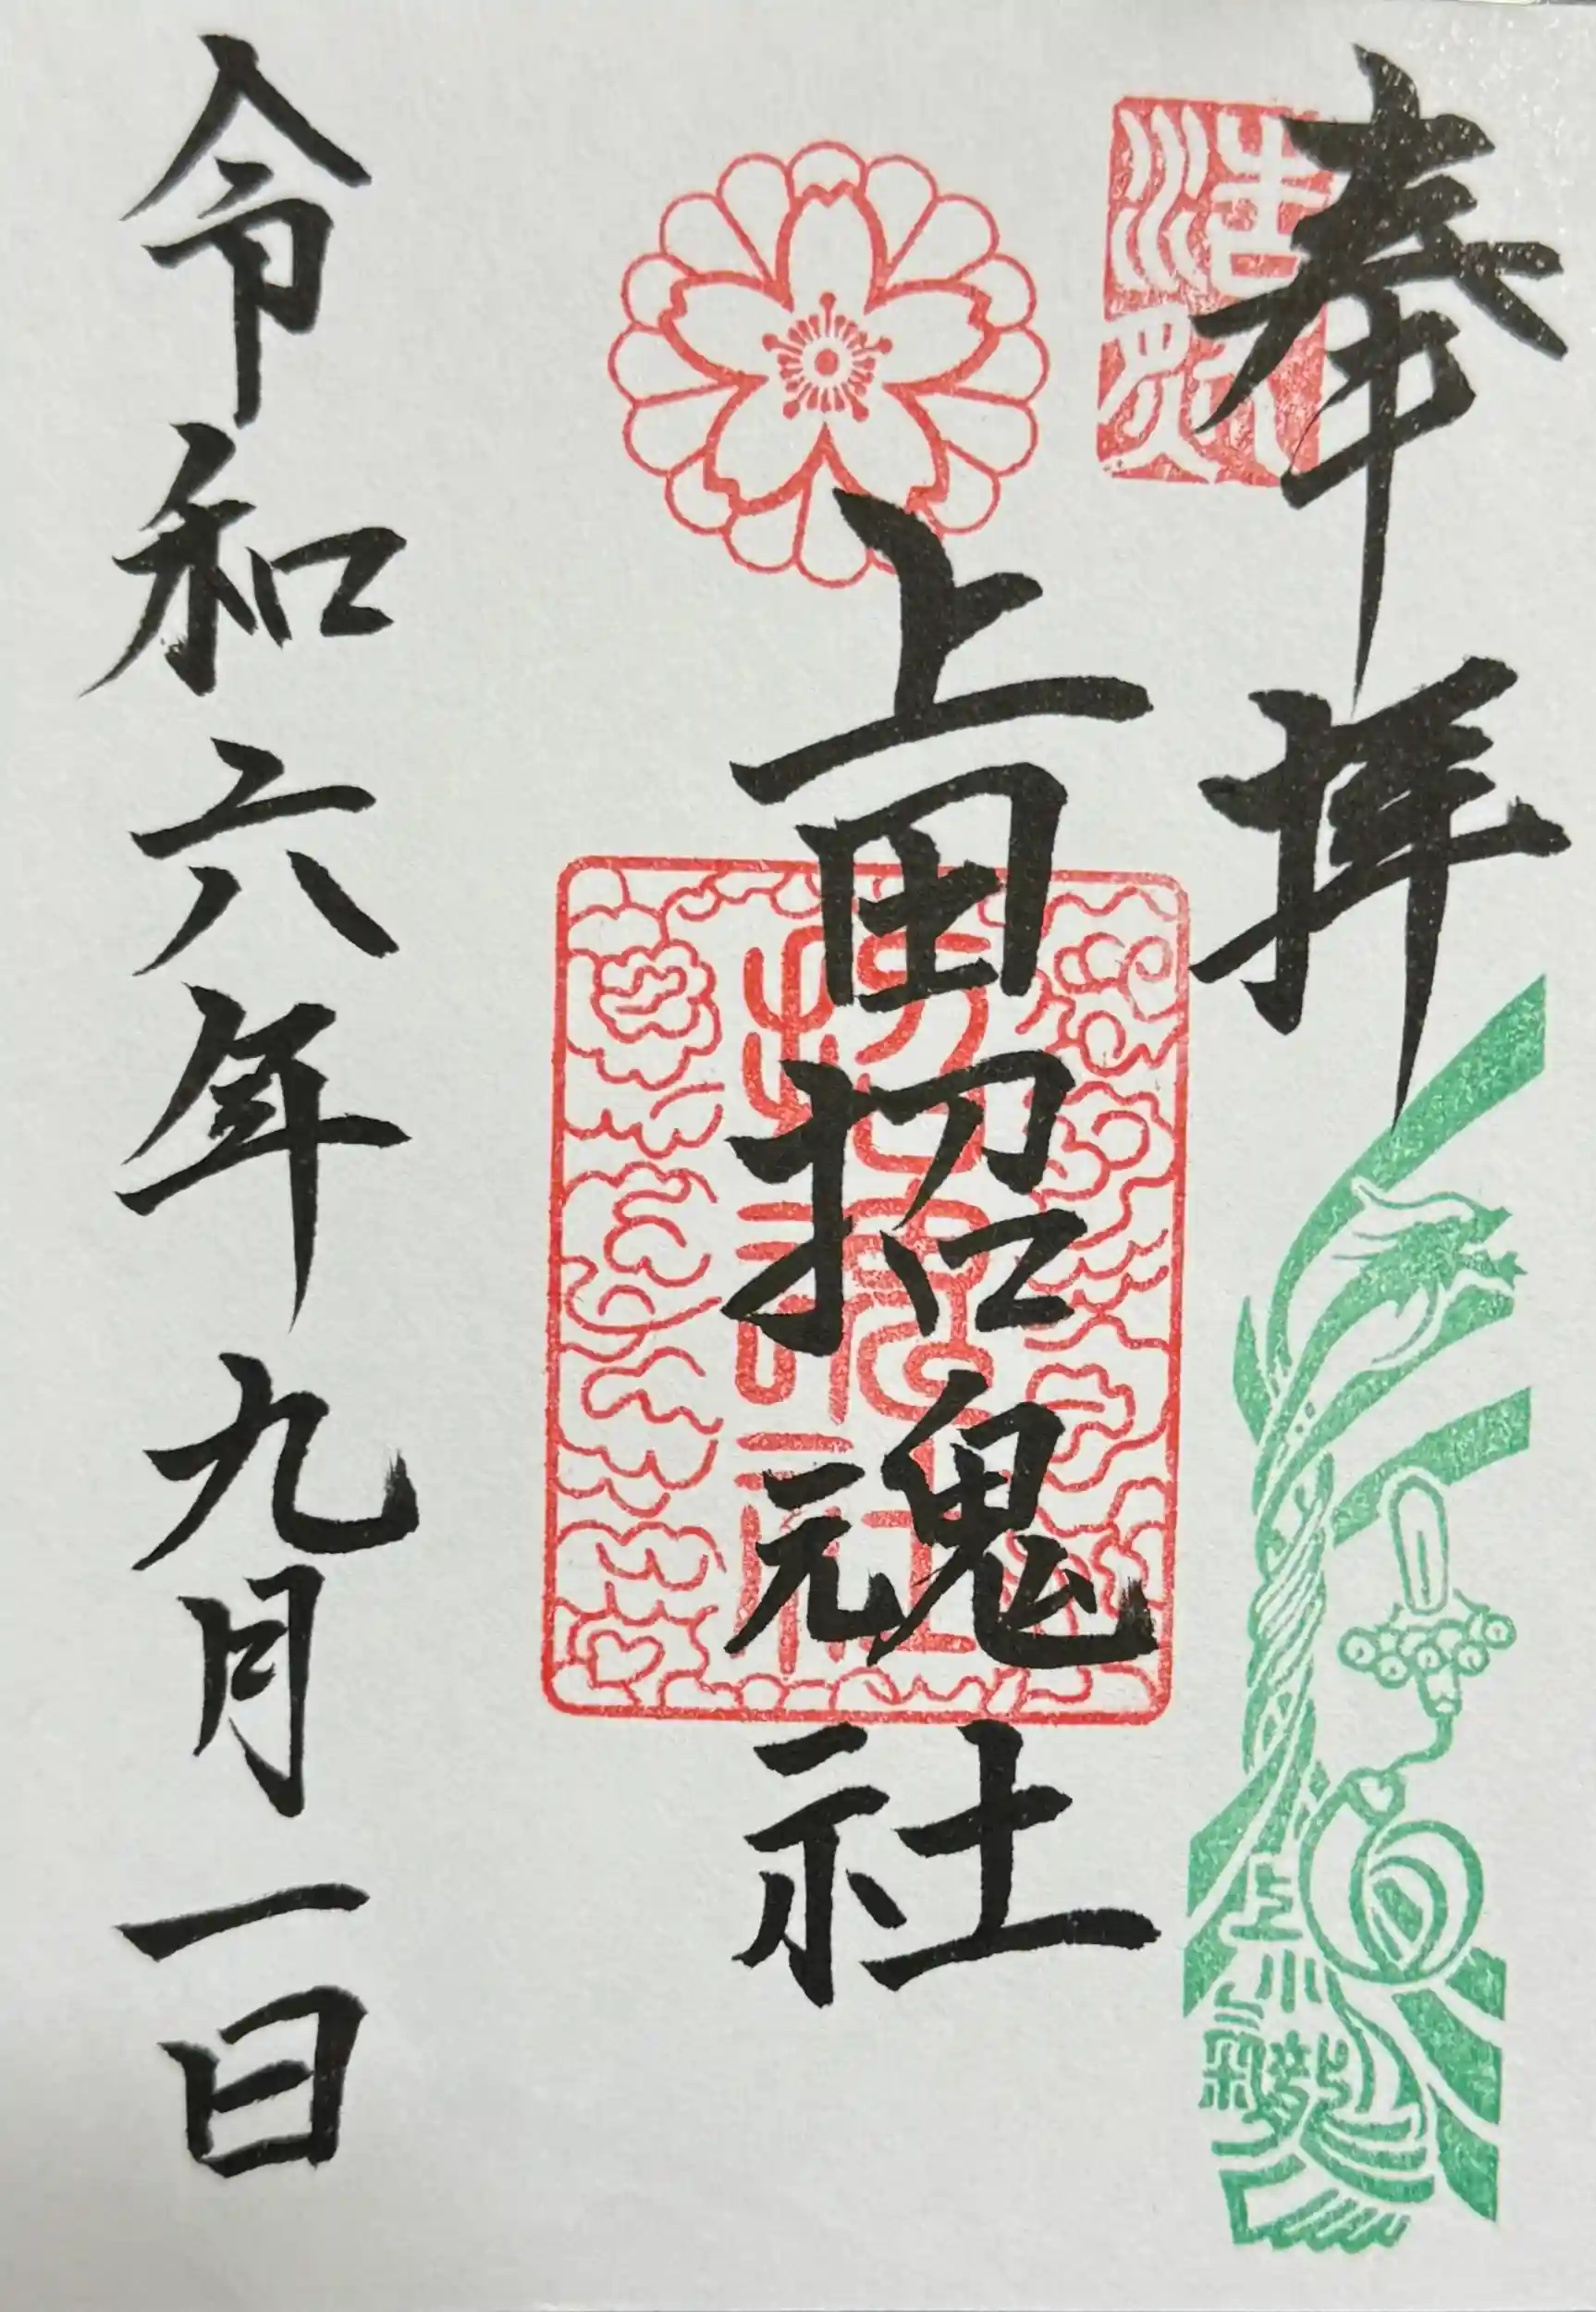 奉拝
上田招魂社
令和六年九月一日
招魂社